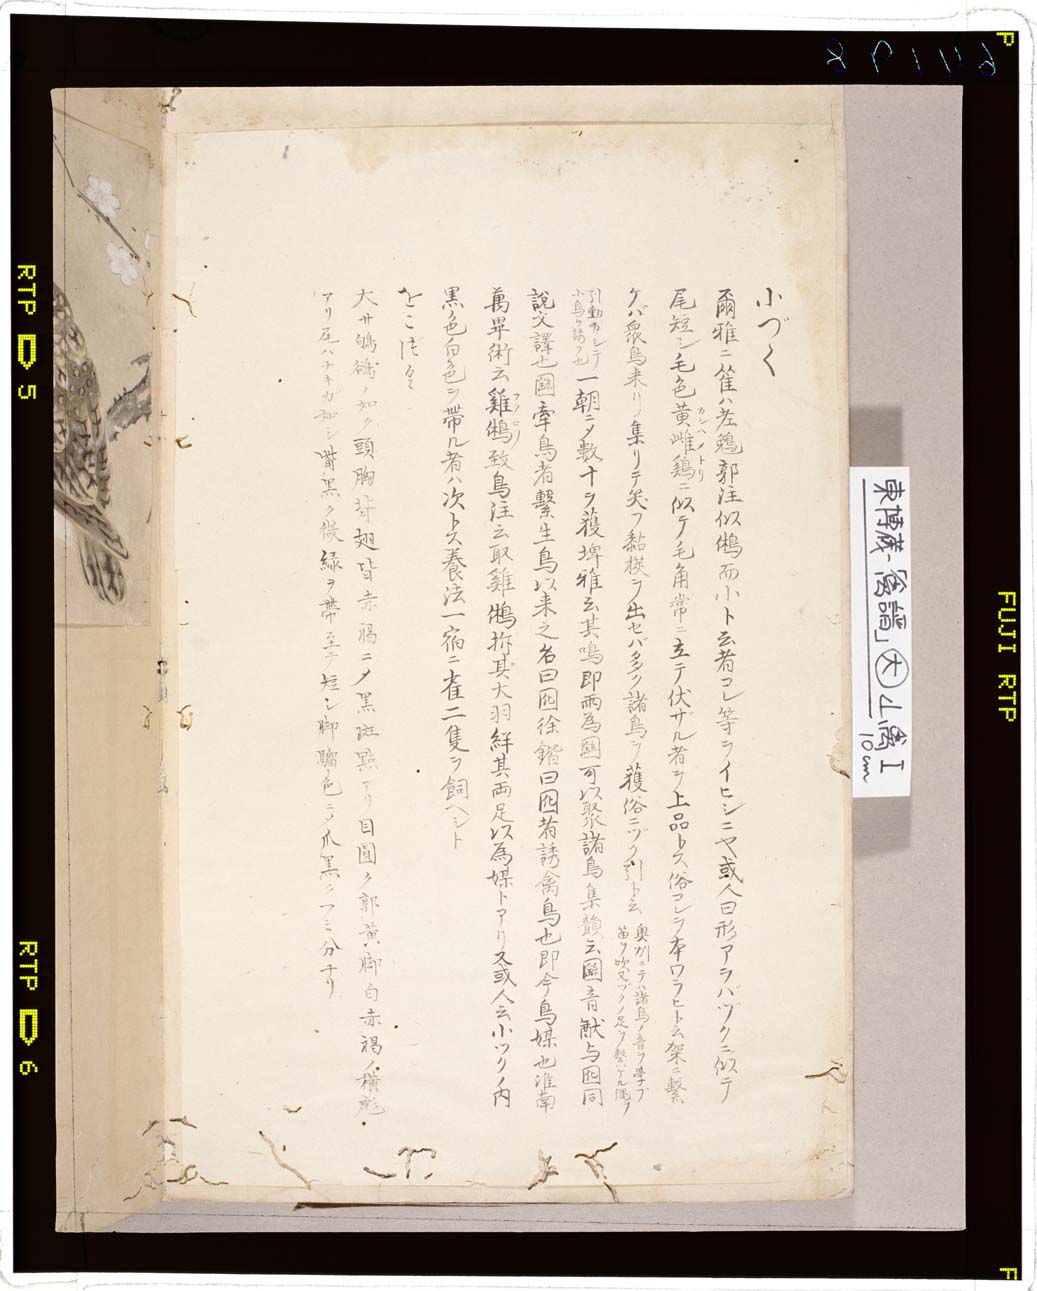 小づく
爾雅ニ萑ハ老鵵郭注似鵂而小ト云者コレ等ヲイヒシニヤ或人曰形アラバヅクニ似テ
尾短シ毛色黄雌鶏ニ似テ毛角常ニ立テ伏ザル者ヲ上品トス俗コレヲホワラヒト云架ニ繋
カシハメトリ
ケバ衆鳥来リ集リテ笑フ黏擌ヲ出セバ多ク諸鳥ヲ獲俗ニヅク引ト云
奥州ニテハ諸鳥ノ音ヲ学ブ
笛ヲ吹又ヅクノ足ヲ繋ケル縄ヲ
引動カシテ
小鳥ヲ誘フ也
一朝ニメ数十ヲ獲埤雅云其鳴即雨為圝可以聚諸鳥集韻云圝音猷与囮同
説文譯也圝率鳥者繋生鳥以来之名曰囮徐鍇曰囮者誘禽鳥也即今鳥媒也淮南
萬畢術云雞鵂致鳥注云取雞鵂拆其大羽絆其両足以為媒トアリ又或人云小ヅクノ内
黒色白色ヲ帯ル者ハ次トス養法一宿ニ雀二隻ヲ飼ヘシト
大サ鴝鵒ノ如ク頭胸背翅皆赤褐ニメ黒斑點アリ目圓ク郭黄脚白赤褐ノ横彪
アリ尾ハナキガ如シ嘴黒ク微緑ヲ帯至テ短シ脚騮色ニメ爪黒クフミ分ナリ
東博蔵「禽譜」大 山禽 I
10cm
RTP 5
RTP 6
RTP
FUJI RTP